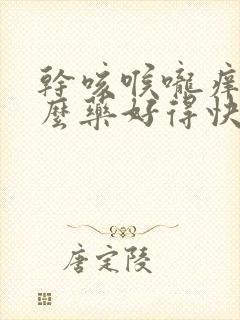 幹咳喉嚨痒
麼藥好得快
唐定陵